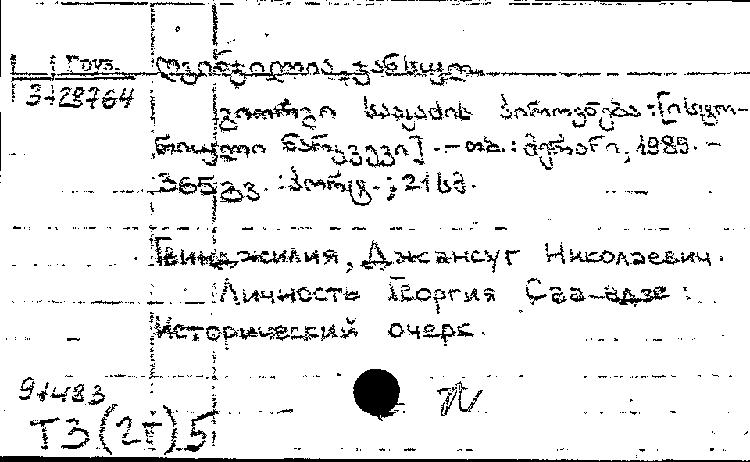 Груз.
ღვინჯილია, ჯანსუღ
3-28764
გიორგი სააკაძის პიროვნება : [ისტო-
რიული ნარკვევი]. - თბ. : მერანი, 1989. -
365 გვ. : პორტ. ; 21 სმ.
Гвинджилия, Джансуг Николаевич.
Личность Георгия Саа-адзе :
Исторический очерк.
91483
Т3(2Г)5